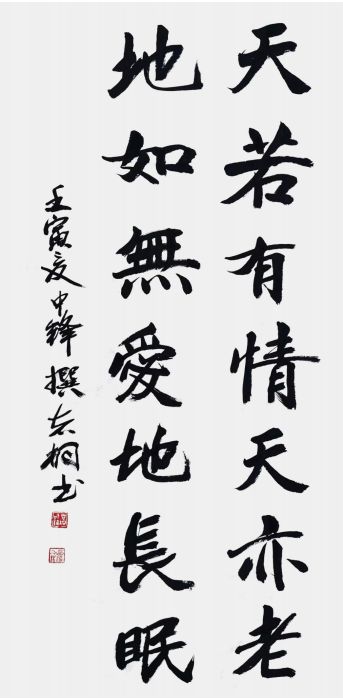 天若有情天亦老
地如無愛地長眠
壬寅夏中鋒撰志桐书